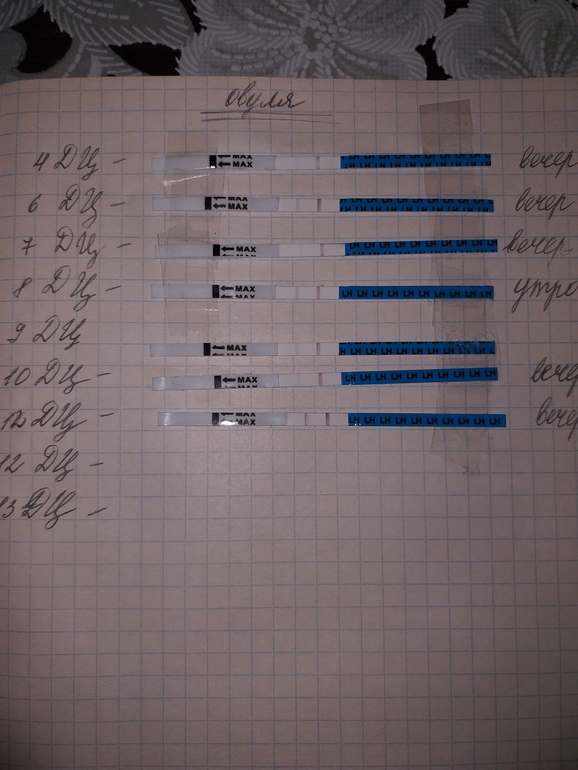 овуля
4 ДЦ - MAX MAX LH LH LH LH LH LH LH LH LH LH вечер
6 ДЦ - MAX MAX LH LH LH LH LH LH LH LH LH LH вечер
7 ДЦ - MAX MAX LH LH LH LH LH LH LH LH LH вечер
8 ДЦ - MAX MAX LH LH LH LH LH LH LH LH LH утро
9 ДЦ MAX LH LH LH LH LH LH LH LH LH
10 ДЦ - MAX MAX LH LH LH LH LH LH LH LH LH вечер
ДЦ - MAX MAX LH LH LH LH LH LH LH LH LH вечер
12 ДЦ -
13 ДЦ -